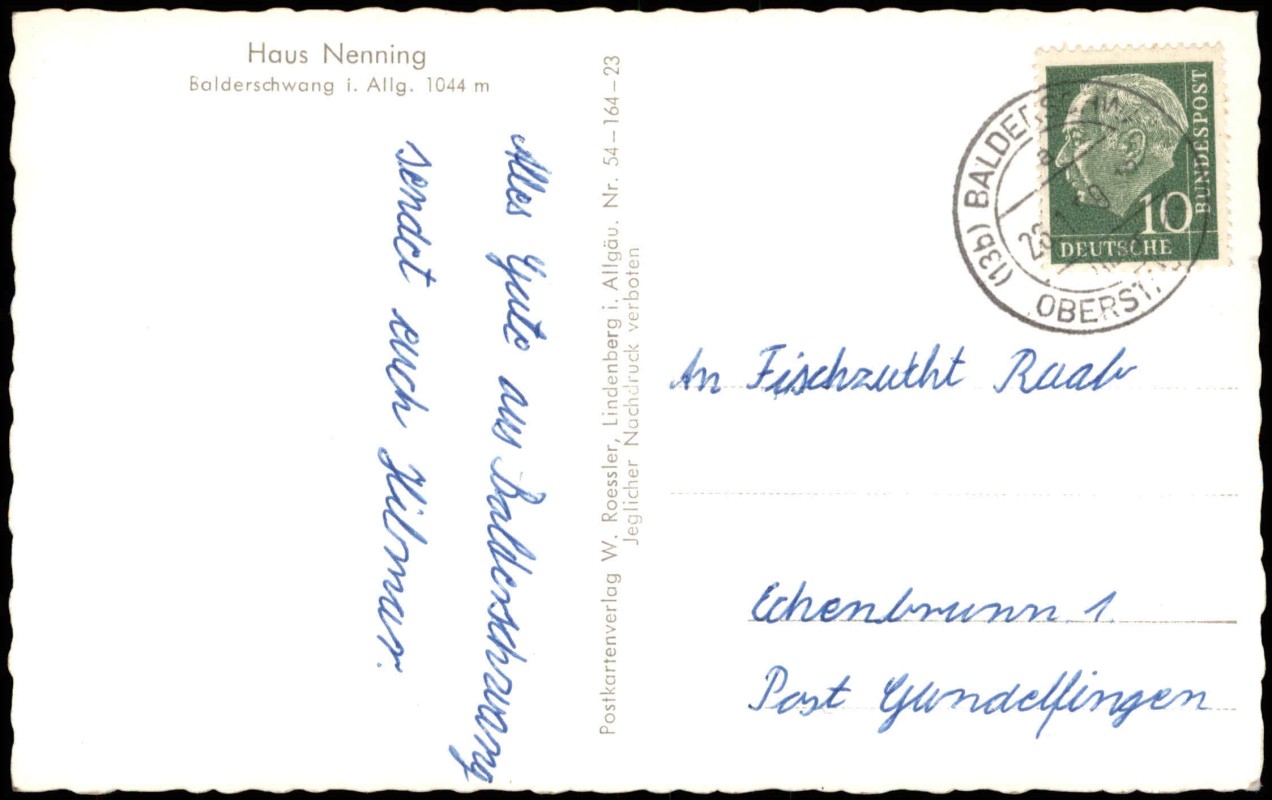 Haus Nenning
Balderschwang i. Allg. 1044 m
Alles Gute aus Balderschwang
sendet euch Hilmar.
Postkartenverlag W. Roessler, Lindenberg i. Allgäu. Nr. 54-164-23
Jeglicher Nachdruck verboten
BUNDESPOST
10
DEUTSCHE
(13b)
An Fischzucht Raab
Echenbrunn 1.
Post Gundelfingen